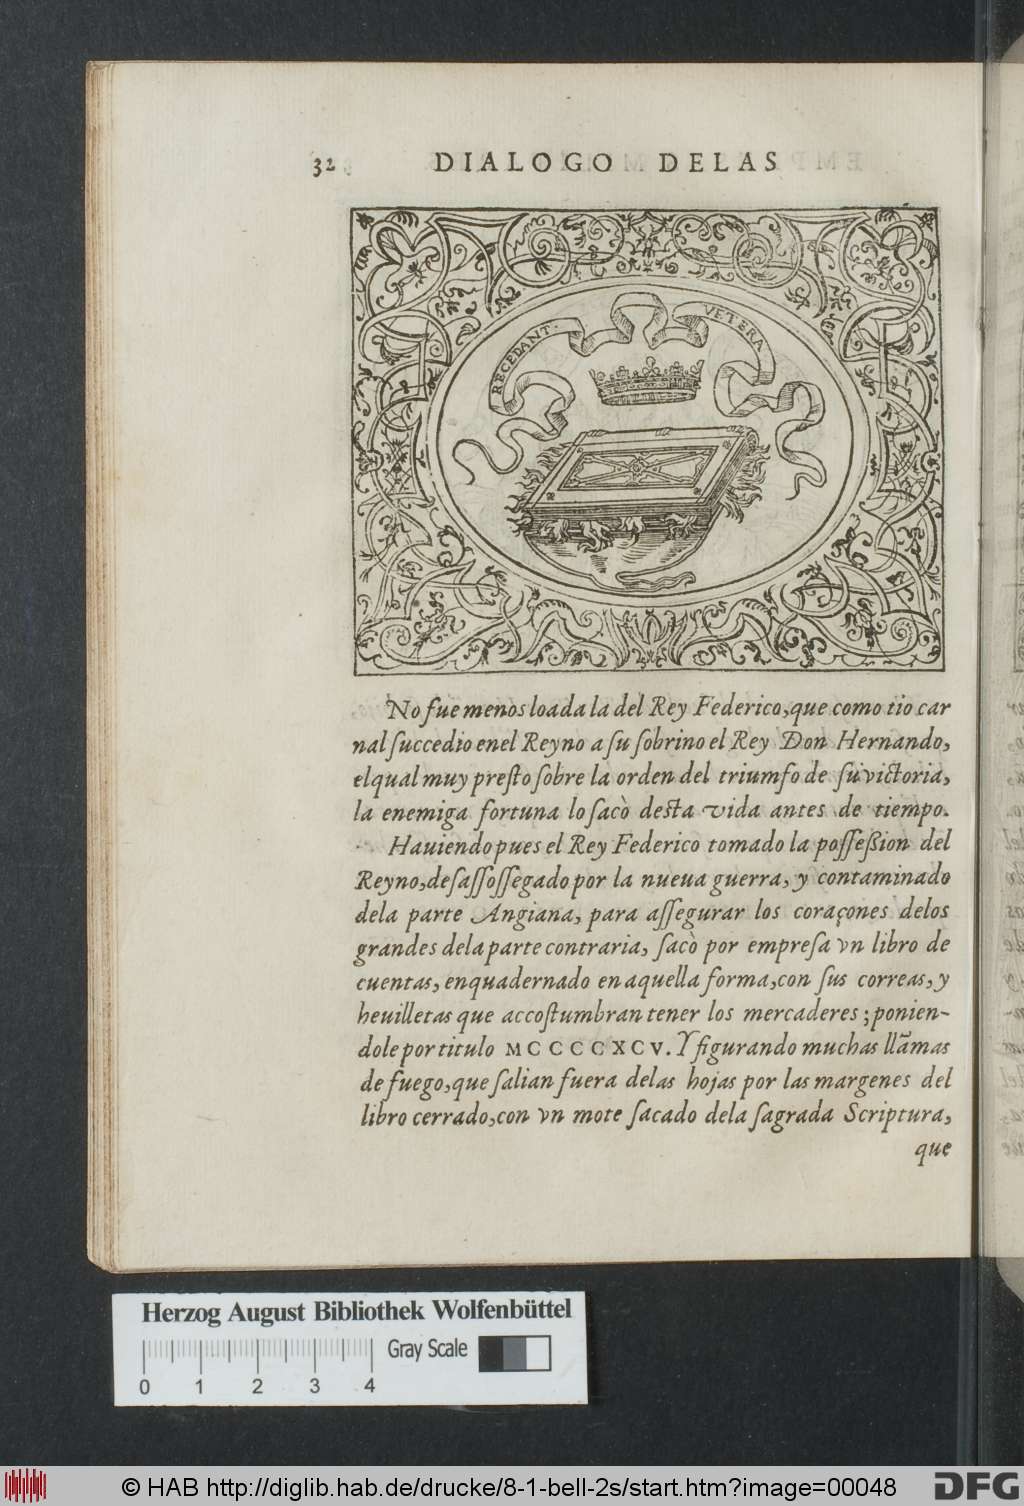 32 DIALOGO DELAS
RECEDANT. VETERA
No fue menos loada la del Rey Federico, que como tio car
nal ſuccedio enel Reyno a ſu ſobrino el Rey Don Hernando,
el qual muy preſto ſobre la orden del triumfo de ſu victoria,
la enemiga fortuna lo ſacò deſta vida antes de tiempo.
Hauiendo pues el Rey Federico tomado la poſſeßion del
Reyno, deſaſſoſſegado por la nueua guerra, y contaminado
dela parte Angiana, para aſſegurar los coraçones delos
grandes dela parte contraria, ſacò por empreſa vn libro de
cuentas, enquadernado en aquella forma, con ſus correas, y
heuilletas que accoſtumbran tener los mercaderes; ponien-
dole por titulo MCCCCXCV. Y figurando muchas llamas
de fuego, que ſalian fuera delas hojas por las margenes del
libro cerrado, con vn mote ſacado dela ſagrada Scriptura,
que
Herzog August Bibliothek Wolfenbüttel
Gray Scale
0 1 2 3 4
© HAB http://diglib.hab.de/drucke/8-1-bell-2s/start.htm?image=00048
DFG